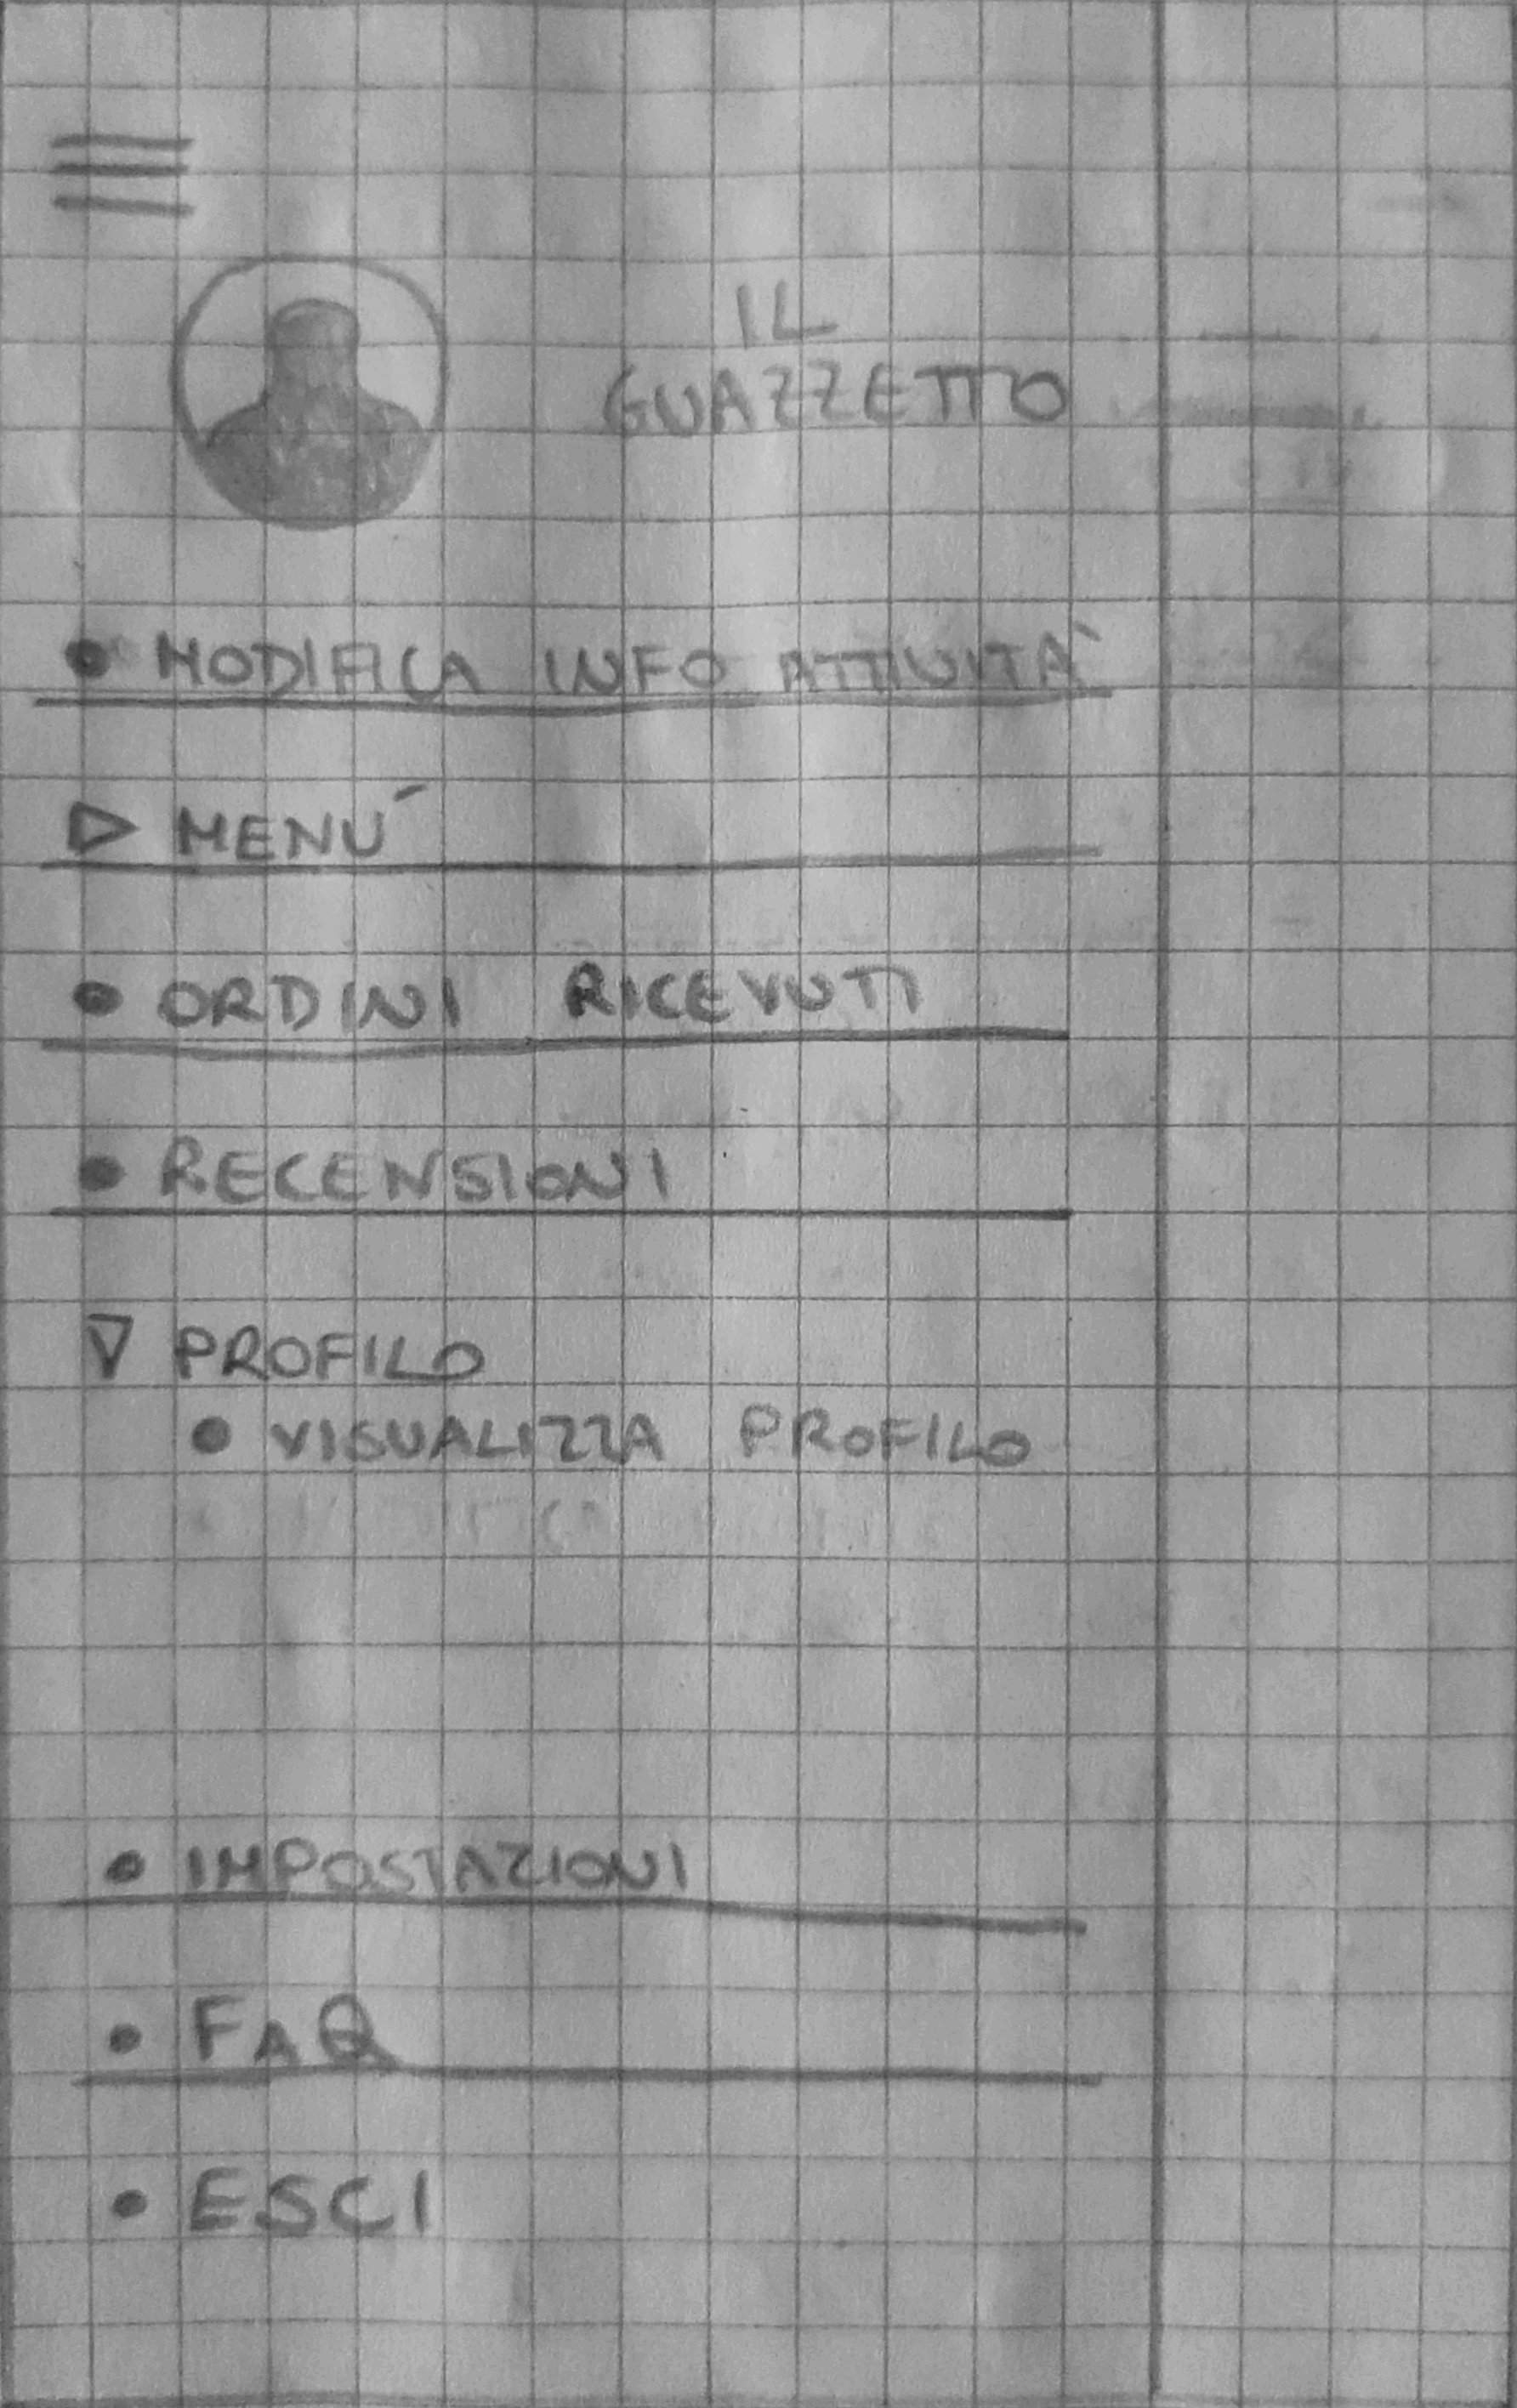 IL
GUAZZETTO
MODIFICA INFO ATTIVITÀ
MENÚ
ORDINI RICEVUTI
RECENSIONI
PROFILO
VISUALIZZA PROFILO
IMPOSTAZIONI
FAQ
ESCI